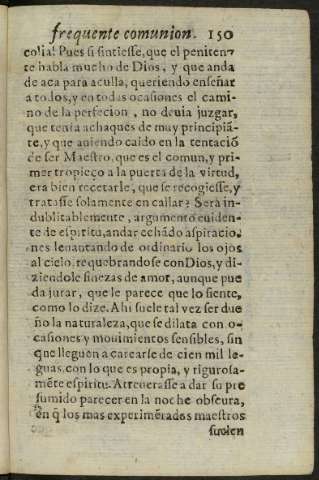 frequente comunion. 150
colia! Pues si sintiesse, que el peniten-
te habla mucho de Dios, y que anda
de aca para aculla, queriendo enseñar
a todos, y en todas ocasiones el cami-
no de la perfecion, no deuia juzgar,
que tenia achaques de muy principiã-
te, y que auiendo caido en la tentaciõ
de ser Maestro, que es el comun, y pri-
mer tropieço a la puerta de la virtud,
era bien recetarle, que se recogiesse, y
tratasse solamente en callar? Serà in-
dublitablemente, argumento euiden-
te de espiritu, andar echãdo aspiracio-
nes leuantando de ordinario los ojos
al cielo, requebrandose con Dios, y di-
ziendole finezas de amor, aunque pue
da jurar, que le parece que lo siente,
como lo dize. Ahi suele tal vez ser due
ño la naturaleza, que se dilata con o-
casiones y mouimientos sensibles, sin
que lleguen a carearse de cien mil le-
guas, con lo que es propia, y rigurosa-
mẽte espiritu. Atreuerasse a dar su pre
sumido parecer en la noche obscura,
en q̃ los mas experimẽtados maestros
suelen